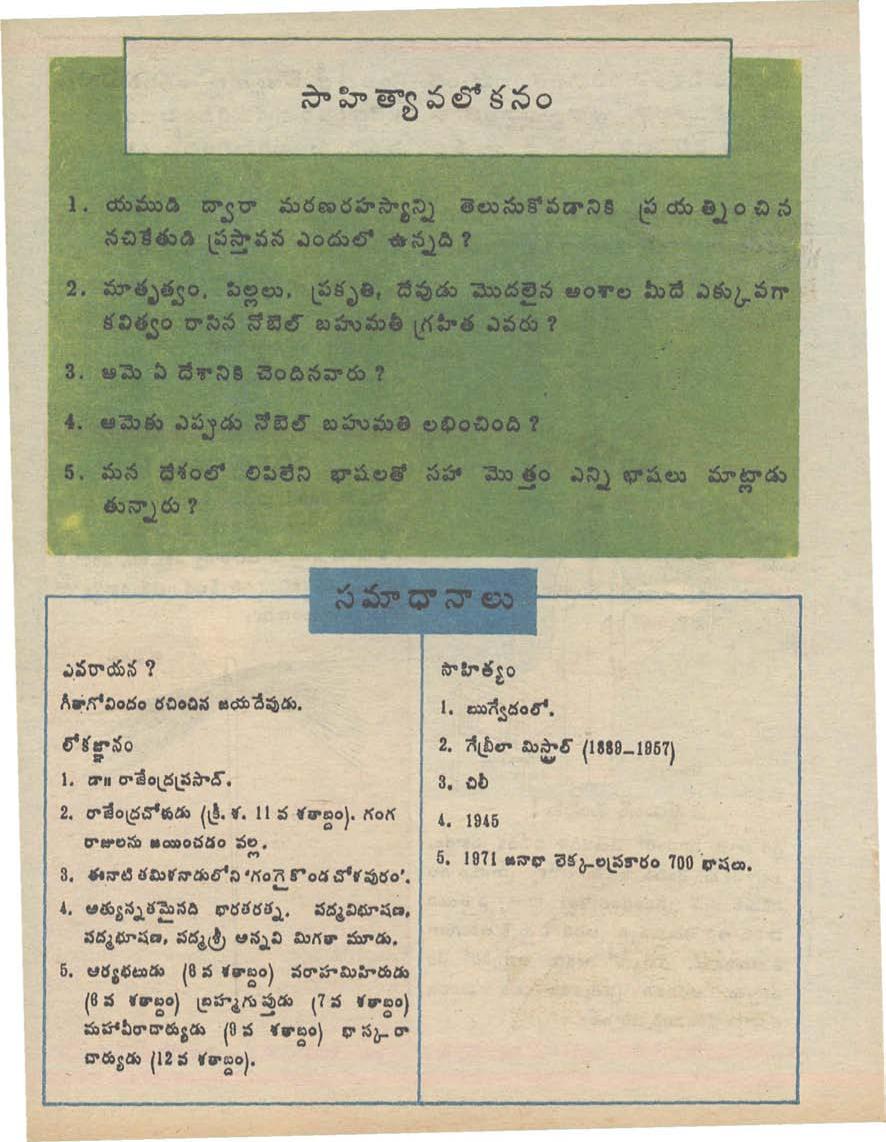 సాహిత్యావలోకనం
1. యముడి ద్వారా మరణరహస్యాన్ని తెలుసుకోవడానికి ప్రయత్నించిన
నచికేతుడి ప్రస్తావన ఎందులో ఉన్నది ?
2. మాతృత్వం, పిల్లలు, ప్రకృతి, దేవుడు మొదలైన అంశాల మీదే ఎక్కువగా
కవిత్వం రాసిన నోబెల్ బహుమతీ గ్రహీత ఎవరు ?
3. ఆమె ఏ దేశానికి చెందినవారు ?
4. ఆమెకు ఎప్పుడు నోబెల్ బహుమతి లభించింది ?
5. మన దేశంలో లిపిలేని భాషలతో సహా మొత్తం ఎన్ని భాషలు మాట్లాడు
తున్నారు ?
సమాధానాలు
ఎవరాయన ?
గీతాగోవిందం రచించిన జయదేవుడు.
లోకజ్ఞానం
1. డా॥ రాజేంద్రప్రసాద్.
2. రాజేంద్రచోళుడు (క్రీ. శ. 11 వ శతాబ్దం). గంగ
రాజులను జయించడం వల్ల.
3. ఈనాటి తమిళనాడులోని 'గంగైకొండ చోళపురం'.
4. అత్యున్నతమైనది భారతరత్న. పద్మవిభూషణ,
పద్మభూషణ, పద్మశ్రీ అన్నవి మిగతా మూడు.
5. ఆర్యభటుడు (6 వ శతాబ్దం) వరాహమిహిరుడు
(6 వ శతాబ్దం) బ్రహ్మగుప్తుడు (7 వ శతాబ్దం)
మహావీరాచార్యుడు (9 వ శతాబ్దం) భాస్కరా
చార్యుడు (12 వ శతాబ్దం).
సాహిత్యం
1. ఋగ్వేదంలో.
2. గేబ్రీలా మిస్ట్రాల్ (1889-1957)
3. చిలీ
4. 1945
5. 1971 జనాభా లెక్కలప్రకారం 700 భాషలు.